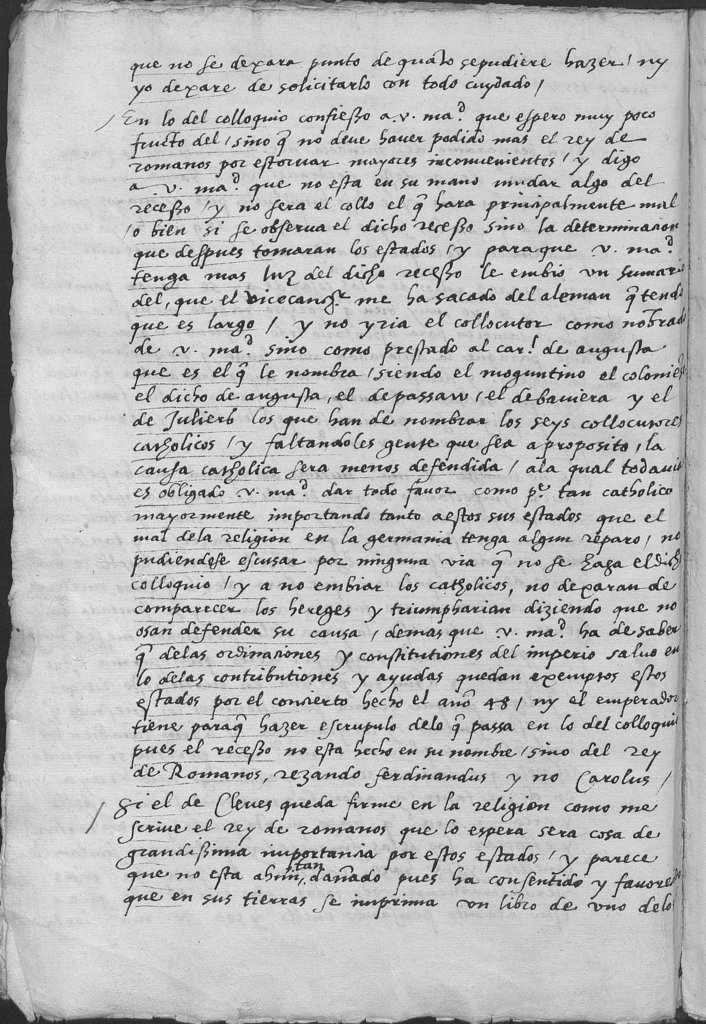 que no se dexara punto de quãto sepudiere hazer / ny
yo dexare de solicitarlo con todo cuydado /
/ En lo del colloquio confiesso a .v. ma.d que espero muy poco
fructo del / sino q̃ no deve haver podido mas el rey de
romanos por estoruar mayores inconuenientes / y digo
a .v. ma.d que no esta en su mano mudar algo del
recesso / y no sera el collo el q̃ hara principalmente mal
/o bien si se obserua el dicho recesso sino la determinacion
que despues tomaran los estados / y paraque .v. ma.d
tenga mas luz del dicho recesso le embio vn sumario
del, que el vicecançr. me ha sacado del aleman q̃ tendi
que es largo / y no yria el collocutor como nõbrado
de .v. ma.d sino como prestado al car.l de augusta
que es el q̃ le nombra / siendo el moguntino el colonien
el dicho de augusta, el depassaw / el debauiera y el
de Julierb los que han de nombrar los seys collocutores
catholicos / y faltandoles gente que sea aproposito, la
causa catholica sera menos defendida / ala qual todauia
es obligado .v. ma.d dar todo fauor como p.e tan catholico
mayormente importando tanto aestos sus estados que el
mal dela religion en la germania tenga algun reparo / no
pudiendose escusar por ninguna via q̃ no se haga eldich
colloquio / y a no embiar los catholicos, no dexaran de
comparecer los hereges y triumpharian diziendo que no
osan defender su causa / demas que .v. ma.d ha de saber
q̃ delas ordinaciones y constitutiones del imperio saluo en
lo delas contributiones y ayudas quedan exemptos estos
estados por el concierto hecho el año 48 / ny el emperador
tiene paraq̃ hazer escrupulo delo q̃ passa en lo del colloquio
pues el recesso no esta hecho en su nombre / sino del rey
de Romanos, rezando ferdinandus y no Carolus /
/ Si el de Cleues queda firme en la religion como me
scriue el rey de romanos que lo espera sera cosa de
grandissima importancia por estos estados / y parece
que no esta ahun tan dañado pues ha consentido y fauore
que en sus tierras se imprima vn libro de vno delos